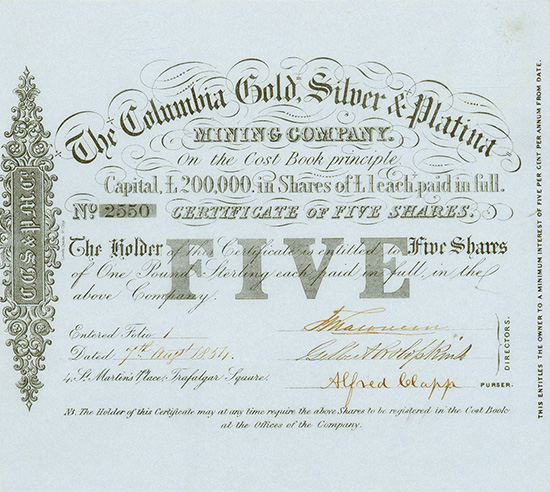 The Columbia Gold, Silver & Platina
MINING COMPANY.
On the Cost Book principle
Capital, £200,000, in Shares of £1 each, paid in full.
No. 2550 CERTIFICATE OF FIVE SHARES.
FIVE
The Holder of this Certificate is entitled to Five Shares
of One Pound Sterling each, paid in full, in the
above Company.
Entered Folio 1
Dated 7th Augt 1854.
4, St. Martin's Place, Trafalgar Square.
DIRECTORS.
Alfred Clapp PURSER.
NB. The Holder of this Certificate may at any time require the above Shares to be registered in the Cost Book
at the Offices of the Company.
C.G.S. & P.M.C.
THIS ENTITLES THE OWNER TO A MINIMUM INTEREST OF FIVE PER CENT PER ANNUM FROM DATE.